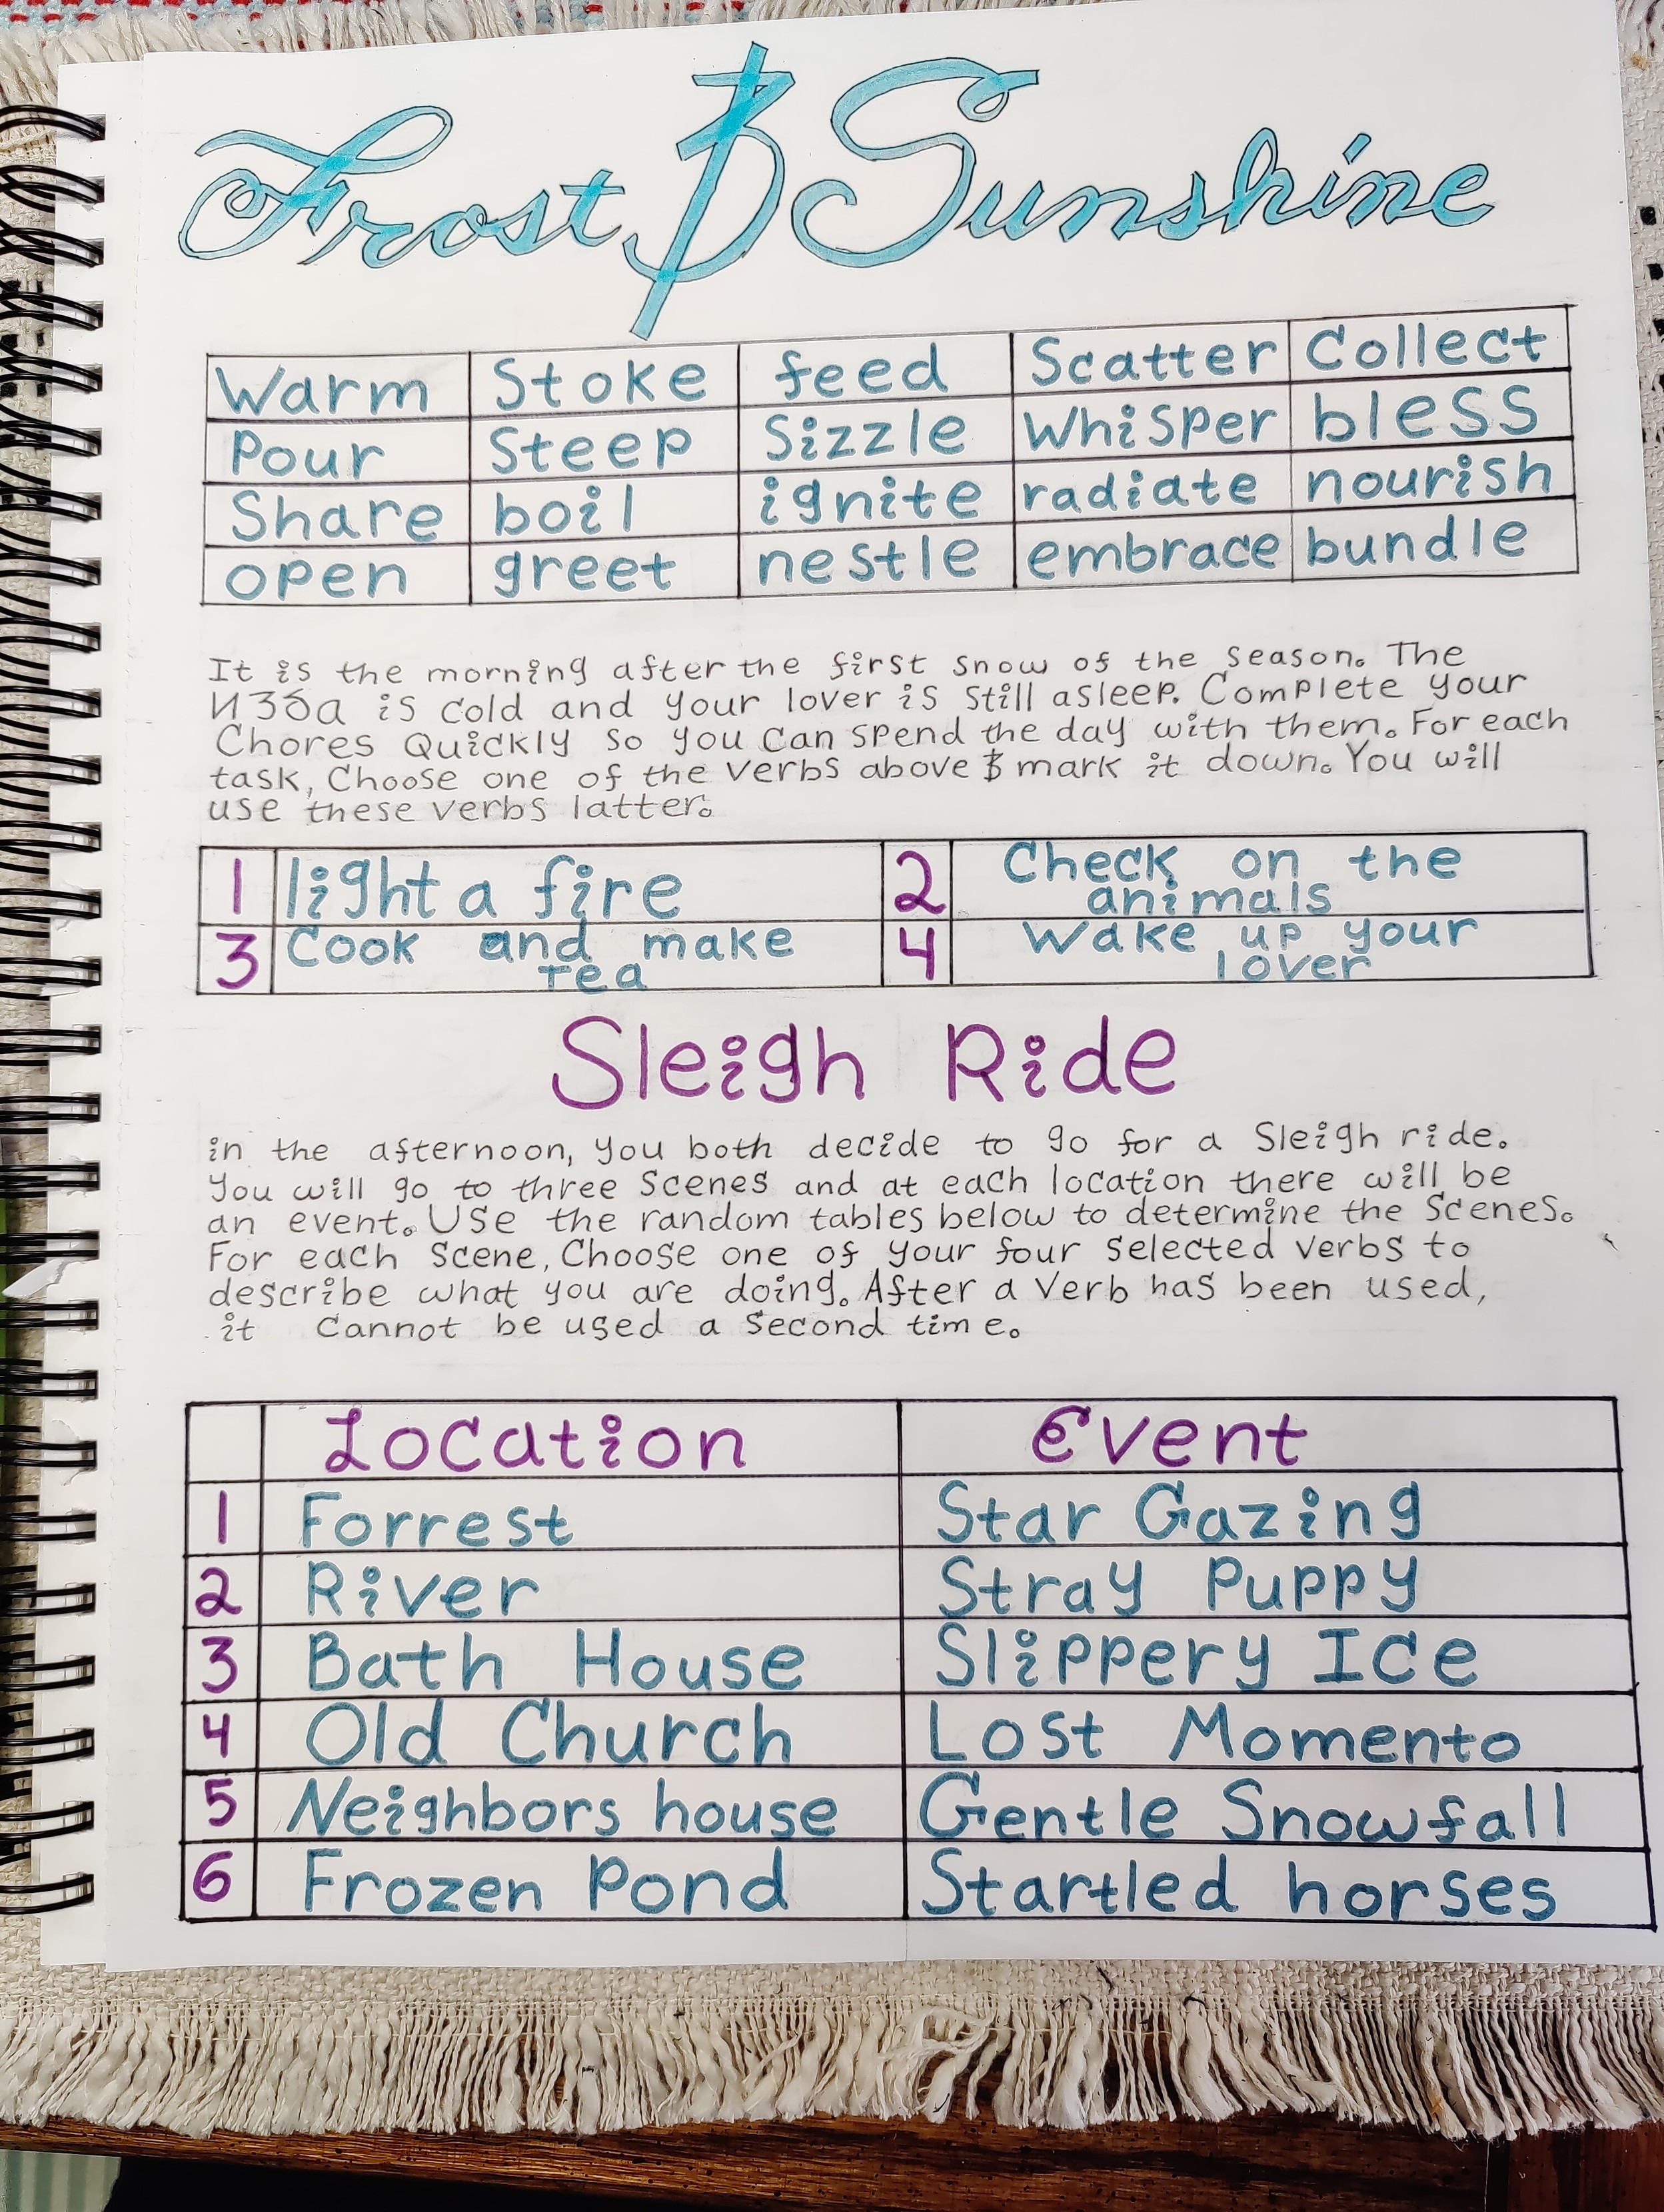 Frost & Sunshine
Warm Stoke feed Scatter Collect
Pour Steep Sizzle Whisper bless
Share boil ignite radiate nourish
open greet nestle embrace bundle
It is the morning after the first snow of the season. The
Изба is cold and your lover is still asleep. Complete your
Chores Quickly so you can spend the day with them. For each
task, Choose one of the verbs above & mark it down. You will
use these verbs latter.
1 light a fire 2 Check on the
animals
3 Cook and make
Tea
4 Wake up your
lover
Sleigh Ride
in the afternoon, you both decide to go for a Sleigh ride.
You will go to three Scenes and at each location there will be
an event. Use the random tables below to determine the Scenes.
For each Scene, Choose one of your four selected verbs to
describe what you are doing. After a verb has been used,
it cannot be used a second time.
Location Event
1 Forrest Star Gazing
2 River Stray Puppy
3 Bath House Slippery Ice
4 Old Church Lost Momento
5 Neighbors house Gentle Snowfall
6 Frozen Pond Startled horses